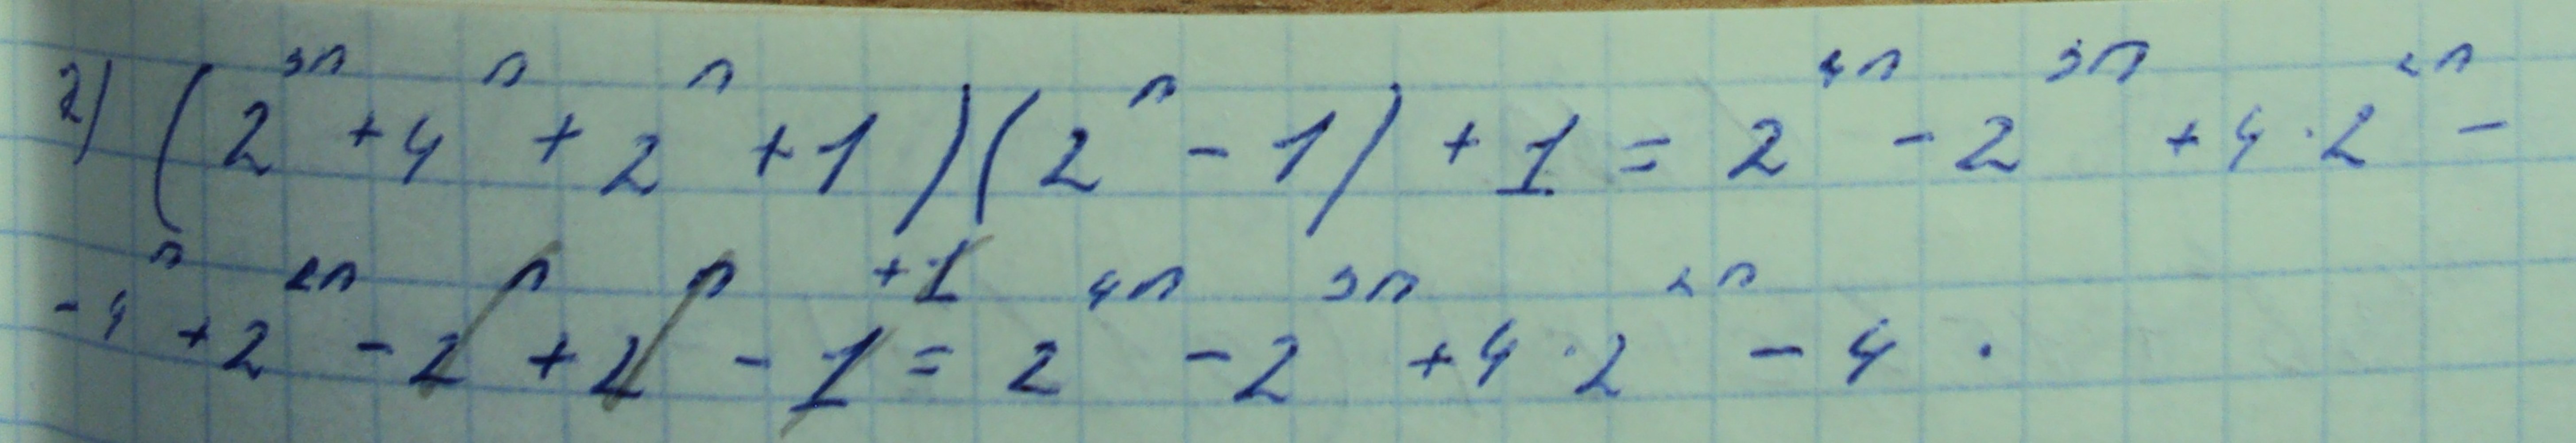 2) (2³ⁿ + 4ⁿ + 2ⁿ + 1)(2ⁿ - 1) + 1 = 2⁴ⁿ - 2³ⁿ + 4 · 2²ⁿ -
- 4ⁿ + 2²ⁿ - 2ⁿ + 2ⁿ - 1 + 1 = 2⁴ⁿ - 2³ⁿ + 4 · 2²ⁿ - 4 ·